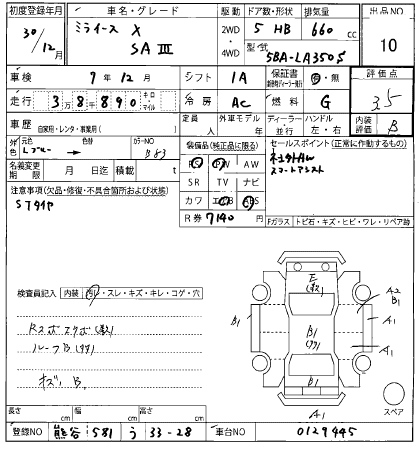 初度登録年月 車名・グレード 駆動 ドア数・形状 排気量 出品NO
30/12月 ミライース X SAⅢ 2WD・4WD 5 HB 660 cc 10
型式 5BA-LA350S
車検 9年12月 シフト IA 保証書 有・無 評価点
走行 3万8千890 キロ・マイル 冷房 AC 燃料 G 3.5
車歴 自家用・レンタ・事業用( ) 定員 人 外車モデル 年 ディーラー・並行 ハンドル 左・右 内装評価 B
外色 元色 Lブルー 色替 カラーNO B83
装備品(純正品に限る) セールスポイント(正常に作動するもの)
PS PW AW
SR TV ナビ
カワ エアB ABS
スマートアシスト
名義変更期限 月 日迄 積載 t
R券 7140 円
注意事項(欠品・修復・不具合箇所および状態)
Sタイヤ
Fガラス トビ石・キズ・ヒビ・ワレ・リペア跡
検査員記入 内装 汚レ・スレ・キズ・キレ・コゲ・穴
ルーフB
キズ、B
E
B1
A2
B1
A1
B1
A1
B1
A1
スペア
長さ cm 幅 cm 高さ cm
登録NO 熊谷 581 う 33-28 車台NO 0129445